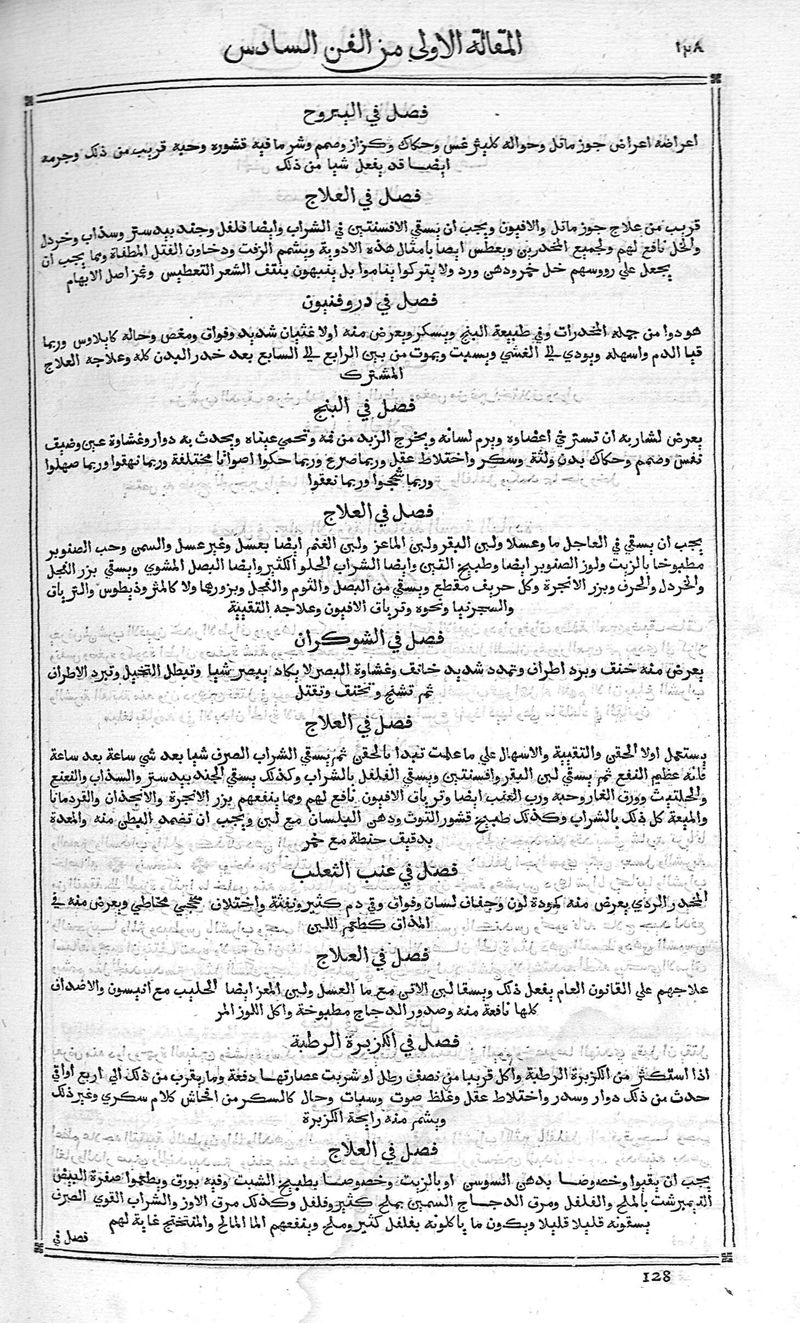 ١٢٨
المقالة الاولى من الفن السادس
فصل في اليبروح
اعراضه اعراض جوز ماثل وحواله كليثرغس وحكاك وكزاز وصمم وشر ما فيه قشوره وحبه قريب من ذلك وجرمه
ايضا قد يفعل شيا من ذلك
فصل في العلاج
قريب من علاج جوز ماثل والافيون ويجب ان يسقي الافسنتين في الشراب وايضا فلفل وجند بيدستر وسذاب وخردل
والخل نافع لهم ولجميع المخدرين ويعطس ايضا بامثال هذه الادوية ويشمم الزفت ودخاون الفتل المطفاة ومما يجب ان
يجعل علي رووسهم خل خمر ودهن ورد ولا يتركوا يناموا بل ينبهون بنتف الشعر التعطيس وغمز اصل الابهام
فصل في دروفنيون
هو دوا من جمله المخدرات وفي طبيعة البنج ويسكر ويعرض منه اولا غثيان شديد وفواق ومغص وحاله كايلاوس وربما
قيا الدم واسهله ويودي الي الغشي ويسبت ويموت من بين الرابع الي السابع بعد خدر البدن كله وعلاجه العلاج
المشترك
فصل في البنج
يعرض لشاربه ان تسترخي اعضاوه ويرم لسانه ويخرج الزبد من فمه وتحمي عيناه ويحدث به دوار وغشاوة عين وضيف
نفس وصمم وحكاك بدن ولثة وسكر واختلاط عقل وربما صرع وربما حكوا اصواتا مختلفة وربما نهقوا وربما صهلوا
وربما شحجوا وربما نعقوا
فصل في العلاج
يجب ان يسقي في العاجل ما وعسلا ولبن البقر ولبن الماعز ولبن الغنم ايضا بعسل وغير عسل والسمن وحب الصنوبر
مطبوخا بالزيت ولوز الصنوبر ايضا وطبيخ التين وايضا الشراب الحلوا الكثير وايضا البصل المشوي ويسقي بزر الفجل
والخردل والحرف وبزر الانجرة وكل حريف مقطع ويسقي من البصل والثوم والفجل وبزورهما ولا كالمثروذيطوس والترياق
والسجرنيا ونحوه وترياق الافيون وعلاجه التقيية
فصل في الشوكران
يعرض منه خنف وبرد اطران وتمدد شديد خانف وغشاوة البصر لا يكاد يبصر شيا وتبطل التخيل وتبرد الاطران
ثم تشنج وتخنف وتقتل
فصل في العلاج
يستعمل اولا الحقن والتقيية والاسهال علي ما علمت تبدا بالحقن ثم يسقي الشراب الصرف شيا بعد شي ساعة بعد ساعة
فانه عظيم النفع ثم يسقي لبن البقر وافسنتين ويسقي الفلفل بالشراب وكذلك يسقي الجند بيدستر والسذاب والفعنع
والحلتيت وورق الغار وحبه ورب العنب ايضا وترياق الافيون نافع لهم ومما ينفعهم بزر الانجرة والانجذان والقردمانا
والميعة كل ذلك بالشراب وكذلك طبيخ قشور التوث ودهن البلسان مع لبن ويجب ان تضمد البطن منه والمعدة
بدقيف حنطة مع خمر
فصل في عنب الثعلب
المخدر الردي يعرض منه كمودة لون وجفان لسان وفواق وقي دم كثير ونفثة واختلاف سحجي مخاطي ويعرض منه في
المذاق كطعم اللبن
فصل في العلاج
علاجهم علي القانون العام يفعل ذلك ويسقا لبن الاتن مع ما العسل ولبن المعز ايضا الحليب مع انيسون والاصداف
كلها نافعة منه وصدور الدجاج مطبوخة واكل اللوز المر
فصل في الكزبرة الرطبة
اذا استكثر من الكزبرة الرطبة واكل قريبا من نصف رطل او شربت عصارتها دفعة وما يقرب من ذلك الي اربع اواقي
حدث من ذلك دوار وسدر واختلاط عقل وغلظ صوت وسبات وحال كالسكر من الحاش كلام سكري وغير ذلك
ويشم منه رايحة الكزبرة
فصل في العلاج
يجب ان يقيوا وخصوصا بدهن السوسن او بالزيت وخصوصا بطبيخ الشبت وفيه بورق ويطعموا صفرة البيض
النيمبرشت بالملح والفلفل ومرق الدجاج السمين بملح كثير وفلفل وكذلك مرق الاوز والشراب القوي الصرف
يسقونه قليلا قليلا ويكون ما ياكلونه بفلفل كثير وملح وينفعهم الما المالح والمنفتج غاية لهم
فصل في
128